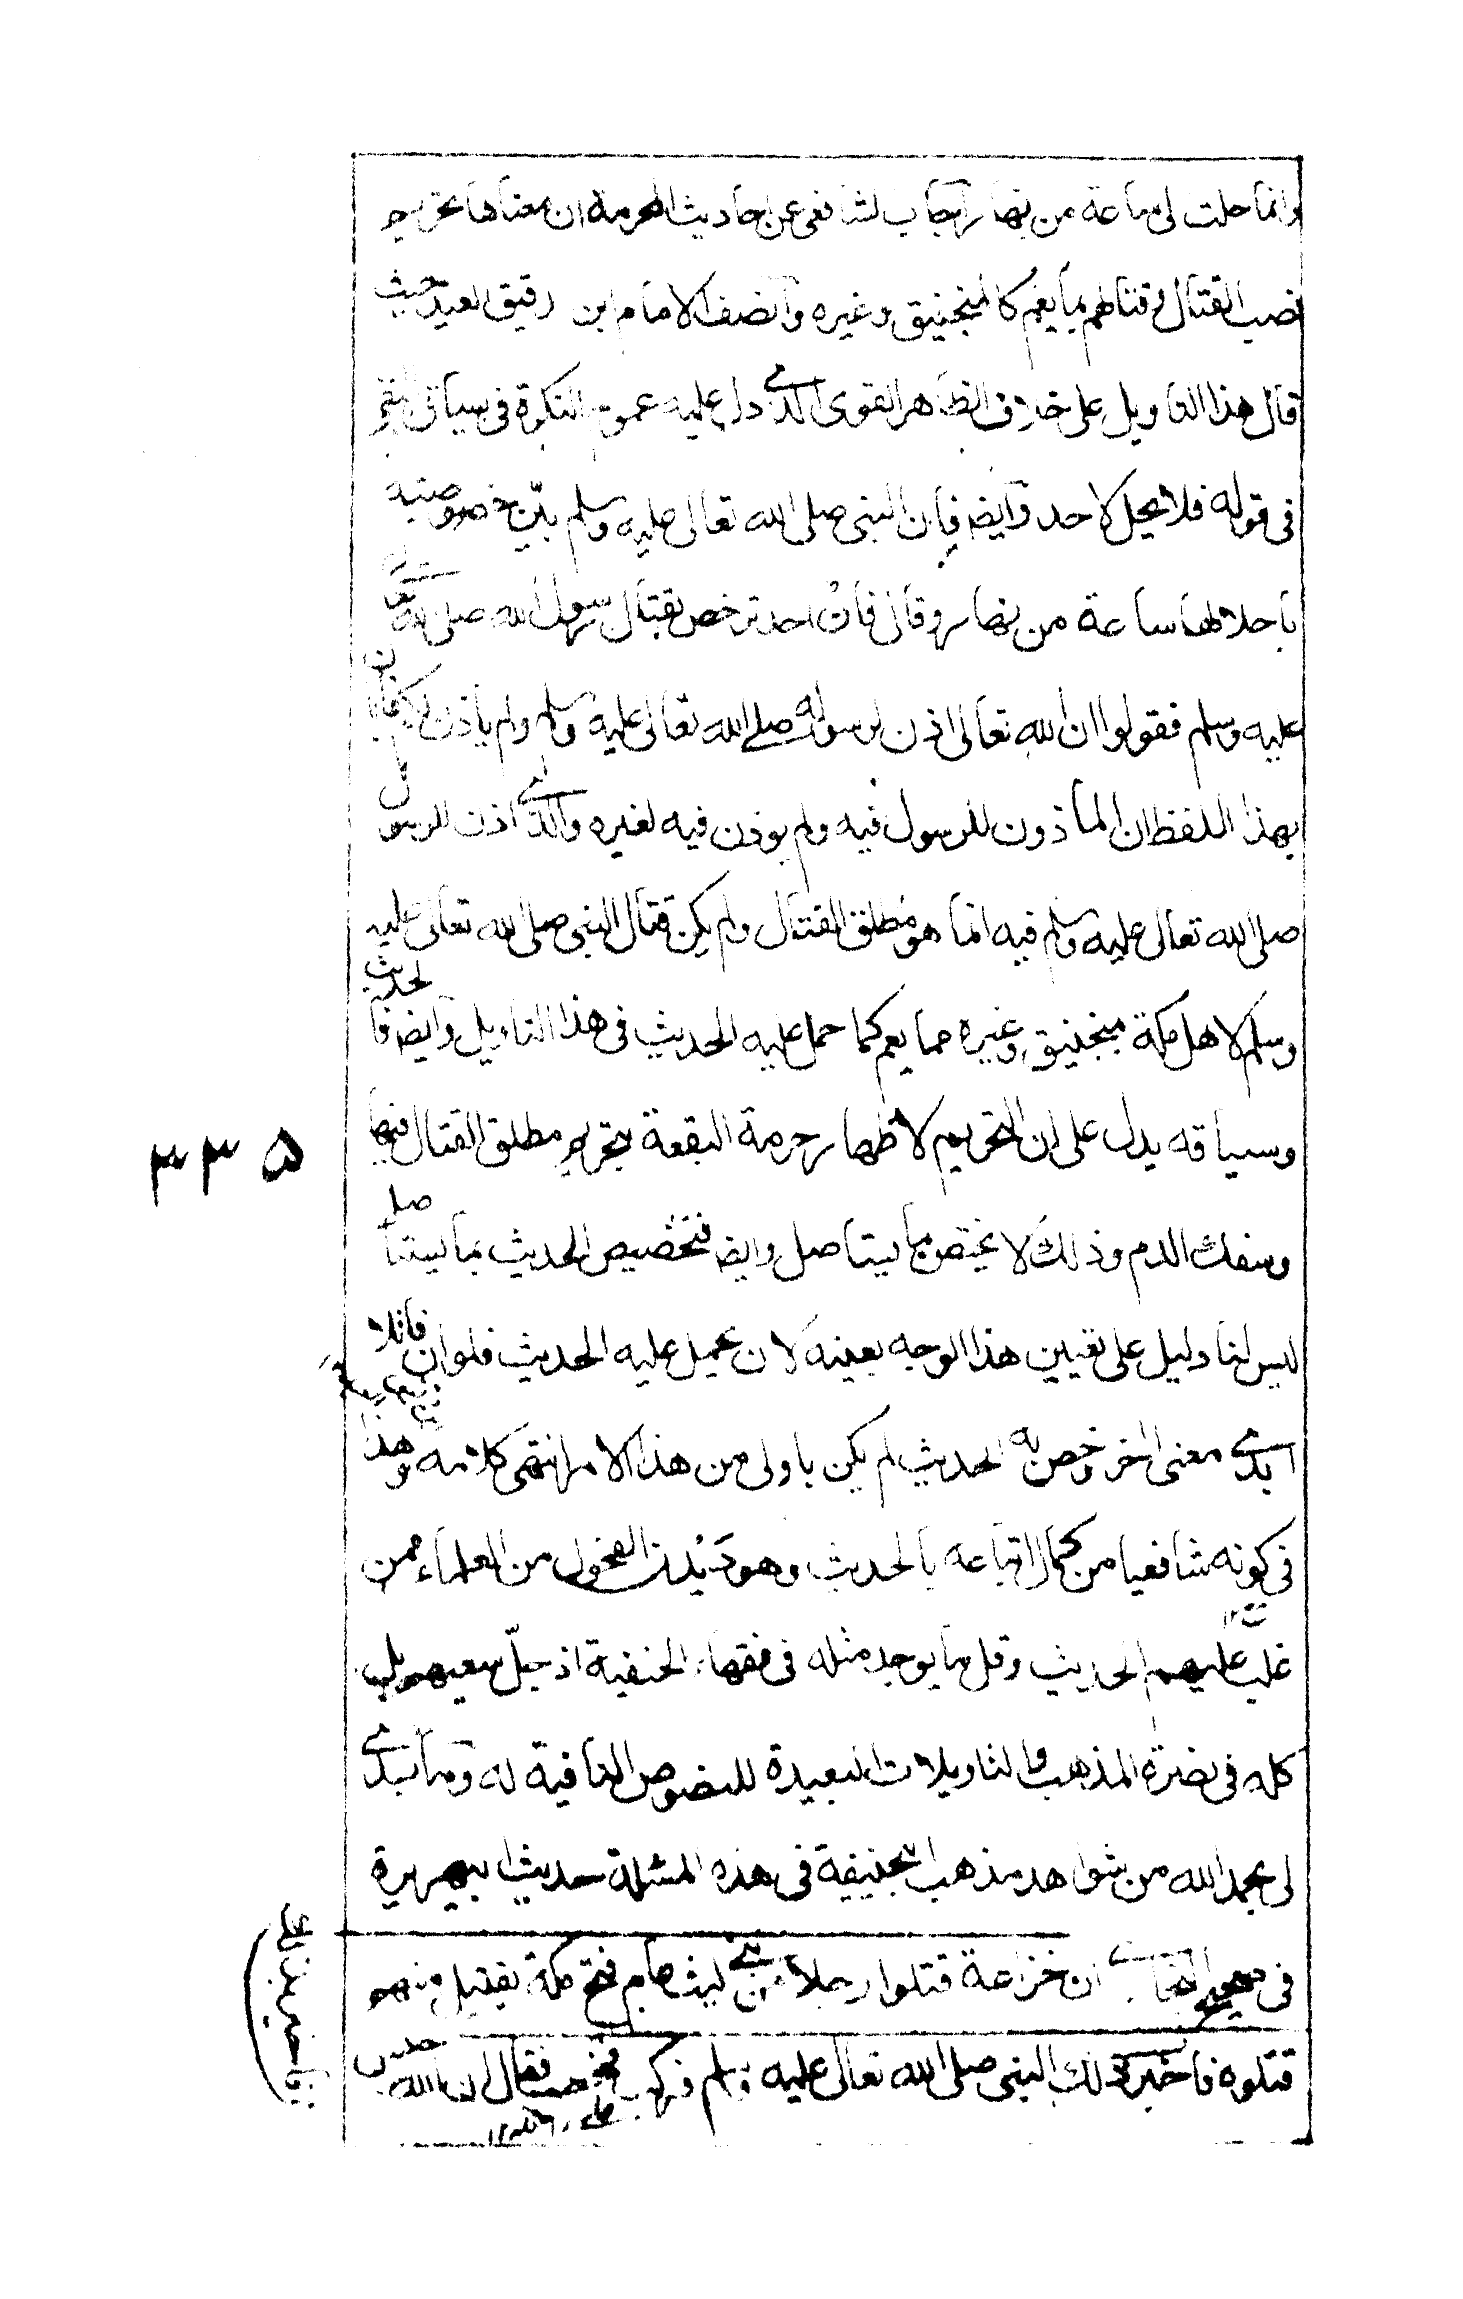 وانما حلت لى ساعة من نهار اجاب الشافعى عن احاديث الحرمة ان معناها تحريم
نصب القتال وقتالهم بما يعم كالمنجنيق وغيره وانصف الامام ابن دقيق العيد حيث
قال هذا التاويل على خلاف الظاهر القوى الذى دل عليه عموم النكرة فى سياق النفى
فى قوله فلا يحل لاحد وايضا فان النبى صلى الله تعالى عليه وسلم بيّن خصوصيته
باحلالها ساعة من نهار وقال فان احد ترخص بقتال رسول الله صلى الله تعالى
عليه وسلم فقولوا ان الله تعالى اذن لرسوله صلى الله تعالى عليه وسلم ولم ياذن لكم فابان
بهذا اللفظ ان الماذون للرسول فيه ولم يوذن فيه لغيره والذى اذن للرسول
صلى الله تعالى عليه وسلم فيه انما هو مطلق القتال ولم يكن قتال النبى صلى الله تعالى عليه
وسلم لاهل مكة بمنجنيق وغيره مما يعم كما حمل عليه الحديث فى هذا التاويل وايضا فالحديث
وسياقه يدل على ان التحريم لاظهار حرمة البقعة بتحريم مطلق القتال فيها
٣٣٥
وسفك الدم وذلك لا يختص بما يستاصل وايضا فتخصيص الحديث بما يستاصل
ليس لنا دليل على تعيين هذا الوجه بعينه لان يحمل عليه الحديث فلو ان قائلا
ابدى معنى اخر وخص به الحديث لم يكن باولى من هذا الامر انتهى كلامه وهذا
فى كونه شافعيا من كمال اتباعه بالحديث وهو ديدن الفحول من العلماء ممن
غلب عليهم الحديث وقل ما يوجد مثله فى فقهاء الحنفية اذ جلّ سعيهم بل
كله فى نصرة المذهب والتاويلات البعيدة للنصوص المنافية له ومما يبدى
لى بحمد الله من شواهد مذهب ابيحنيفة فى هذه المسئلة حديث ابيهريرة
فى صحيح البخارى ان خزاعة قتلوا رجلا من بنى ليث عام فتح مكة بقتيل منهم
قتلوه فاخبر بذلك النبى صلى الله تعالى عليه وسلم فركب فخطب فقال ان الله حبس